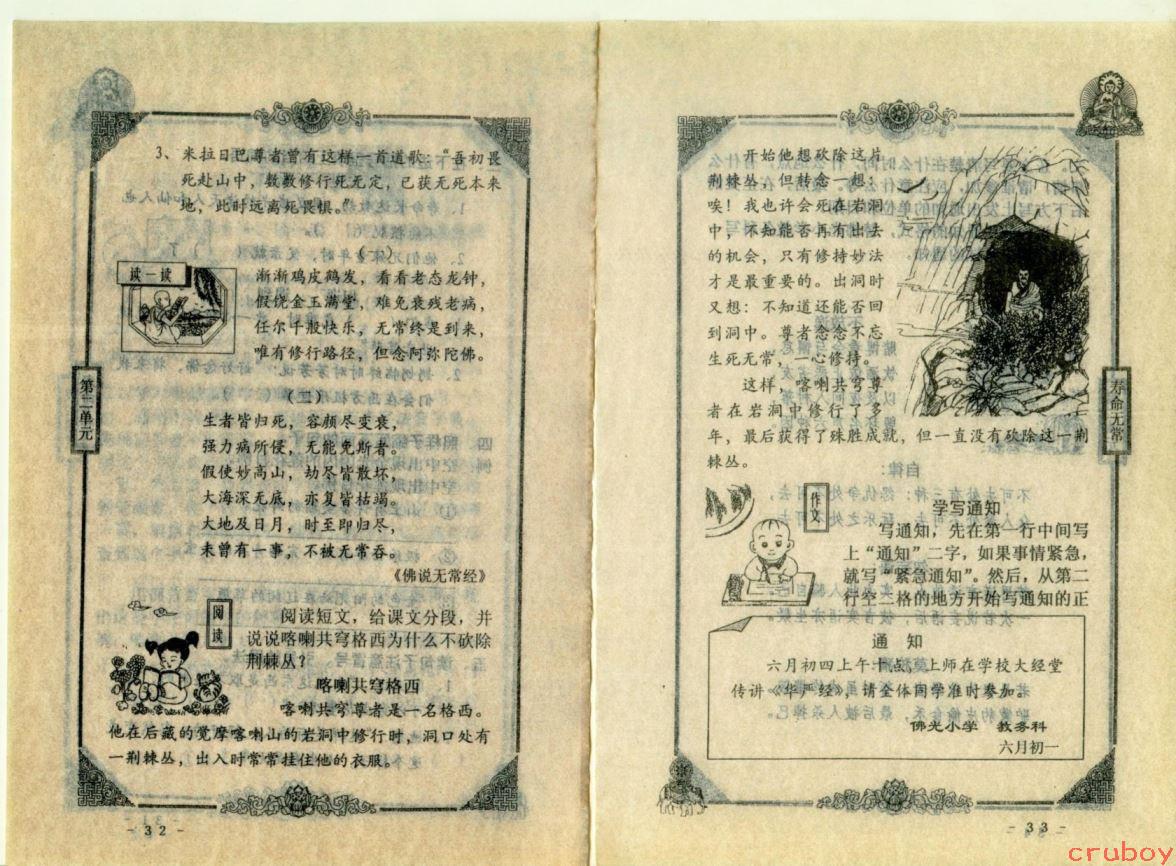 3、米拉日巴尊者曾有这样一首道歌：“吾初畏
死赴山中，数数修行死无定，已获无死本来
地，此时远离死畏惧。”
(一)
读一读
渐渐鸡皮鹤发，看看老态龙钟，
假饶金玉满堂，难免衰残老病，
任尔千般快乐，无常终是到来，
唯有修行路径，但念阿弥陀佛。
(二)
第二单元
生者皆归死，容颜尽变衰，
强力病所侵，无能免斯者。
假使妙高山，劫尽皆散坏，
大海深无底，亦复皆枯竭。
大地及日月，时至即归尽，
未曾有一事，不被无常吞。
《佛说无常经》
阅读
阅读短文，给课文分段，并
说说喀喇共穹格西为什么不砍除
荆棘丛？
喀喇共穹格西
喀喇共穹尊者是一名格西。
他在后藏的觉摩喀喇山的岩洞中修行时，洞口处有
一荆棘丛，出入时常常挂住他的衣服。
- 32 -
开始他想砍除这片
荆棘丛，但转念一想：
唉！我也许会死在岩洞
中，不知能否再有出去
的机会，只有修持妙法
才是最重要的。出洞时
又想：不知道还能否回
到洞中。尊者念念不忘
生死无常，一心修持。
这样，喀喇共穹尊
者在岩洞中修行了多
年，最后获得了殊胜成就，但一直没有砍除这一荆
棘丛。
寿命无常
作文
学写通知
写通知，先在第一行中间写
上“通知”二字，如果事情紧急，
就写“紧急通知”。然后，从第二
行空二格的地方开始写通知的正
通 知
六月初四上午十点，上师在学校大经堂
传讲《华严经》，请全体同学准时参加。
佛光小学 教务科
六月初一
- 33 -
cruboy